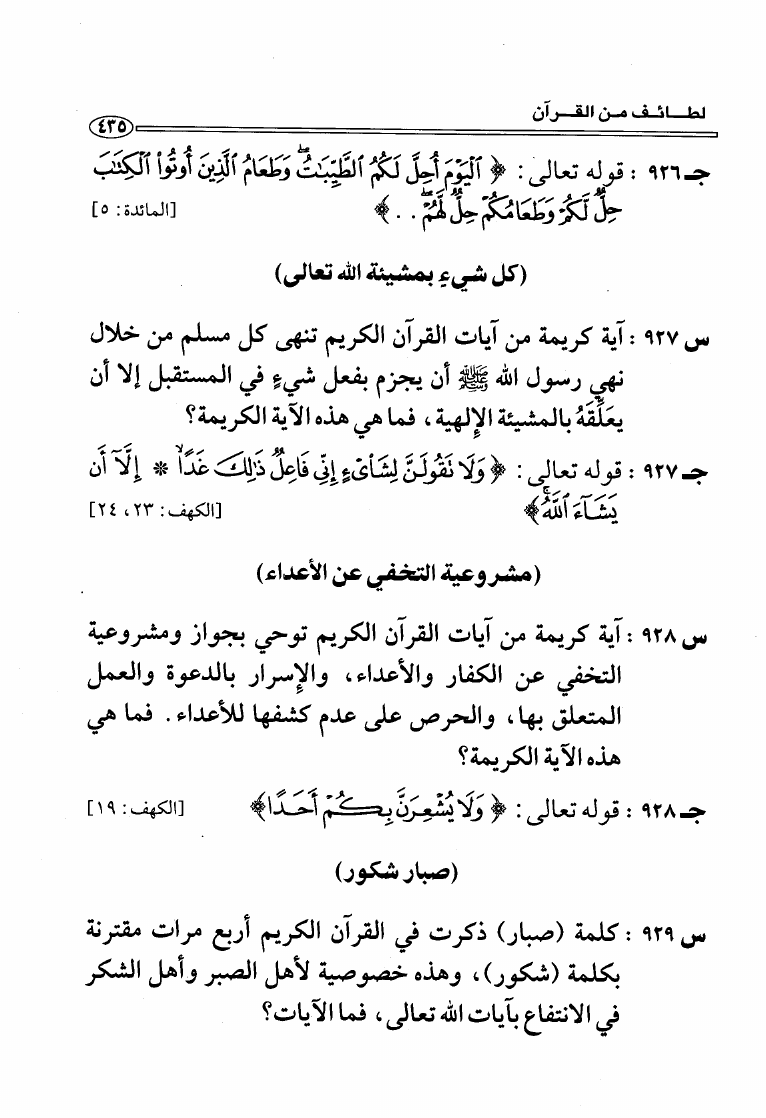 لطـــائـــف مـــن القـــرآن
٤٣٥
جـ ٩٢٦ : قوله تعالى: ﴿ ٱلْيَوْمَ أُحِلَّ لَكُمُ ٱلطَّيِّبَٰتُ ۖ وَطَعَامُ ٱلَّذِينَ أُوتُوا۟ ٱلْكِتَٰبَ
حِلٌّ لَّكُمْ وَطَعَامُكُمْ حِلٌّ لَّهُمْ ۖ . . ﴾ [المائدة: ٥]
(كل شيءٍ بمشيئة الله تعالى)
س ٩٢٧ : آية كريمة من آيات القرآن الكريم تنهى كل مسلم من خلال
نهي رسول الله ﷺ أن يجزم بفعل شيءٍ في المستقبل إلا أن
يعلِّقَهُ بالمشيئة الإلهية، فما هي هذه الآية الكريمة؟
جـ ٩٢٧ : قوله تعالى: ﴿ وَلَا تَقُولَنَّ لِشَا۟ىْءٍ إِنِّى فَاعِلٌ ذَٰلِكَ غَدًا * إِلَّآ أَن
يَشَآءَ ٱللَّهُ ۚ ﴾ [الكهف: ٢٣، ٢٤]
(مشروعية التخفي عن الأعداء)
س ٩٢٨ : آية كريمة من آيات القرآن الكريم توحي بجواز ومشروعية
التخفي عن الكفار والأعداء، والإسرار بالدعوة والعمل
المتعلق بها، والحرص على عدم كشفها للأعداء. فما هي
هذه الآية الكريمة؟
جـ ٩٢٨ : قوله تعالى: ﴿ وَلَا يُشْعِرَنَّ بِكُمْ أَحَدًا ﴾ [الكهف: ١٩]
(صبار شكور)
س ٩٢٩ : كلمة (صبار) ذكرت في القرآن الكريم أربع مرات مقترنة
بكلمة (شكور)، وهذه خصوصية لأهل الصبر وأهل الشكر
في الانتفاع بآيات الله تعالى، فما الآيات؟